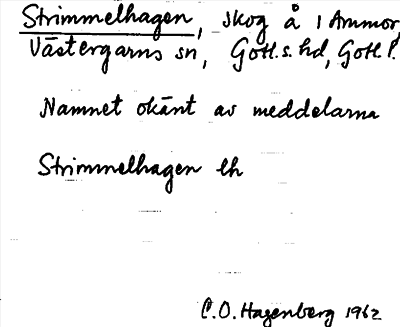 Strimmelhagen, skog å 1 Ammor,
Västergarns sn, Gotl. s. hd, Gotl. l.
Namnet okänt av meddelarna
Strimmelhagen lh
C.O. Hagenberg 1962